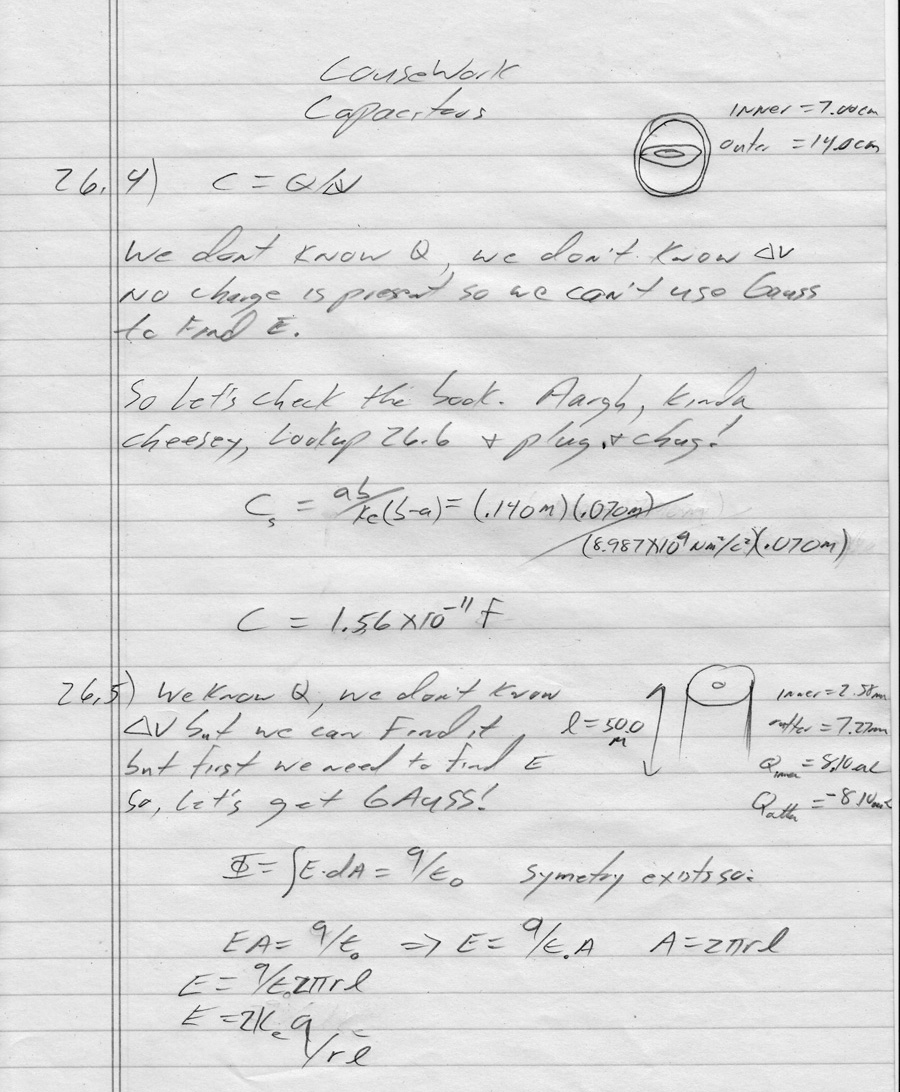 CouseWork
Capacitors
inner = 7.00cm
outer = 14.0cm
26.4) C = Q/ΔV
We dont know Q, we don't know ΔV
No charge is present so we can't use Gauss
to Find E.
So Let's check the book. Aargh, kinda
cheesey, Lookup 26.6 + plug + chug!
Cs = ab/ke(b-a) = (.140m)(.070m)/
(8.987x10⁹ Nm²/c²)(.070m)
C = 1.56 x10⁻¹¹ F
26.5) We know Q, we don't know
ΔV but we can Find it,
but first we need to find E
So, Let's get GAuss!
l = 50.0
m
inner = 2.58mm
outter = 7.27mm
Q inner = 8.10uc
Q outter = -8.10uc
Φ = ∫E·dA = q/ε₀ Symetry exists so:
EA = q/ε₀ => E = q/ε₀A A = 2πrl
E = q/ε₀2πrl
E = 2Ke q
/rl